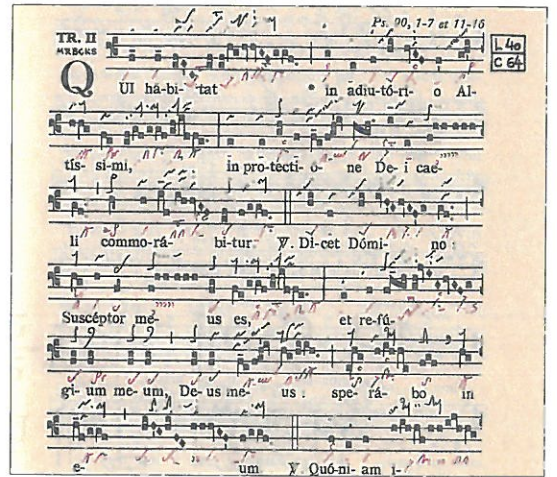 Ps. 90, 1-7 et 11-16
TR. II
MRBCKS
L 40
C 64
QUI há-bi- tat * in adiu-tó-ri- o Al-
tís- si-mi, in pro-tecti- o- ne De- i cae
li commo-rá- bi-tur. ℣. Di-cet Dómi- no:
Suscéptor me- us es, et re-fú-
gi- um me-um, De-us me- us: spe- rá- bo in
e- um ℣. Quó-ni- am i-